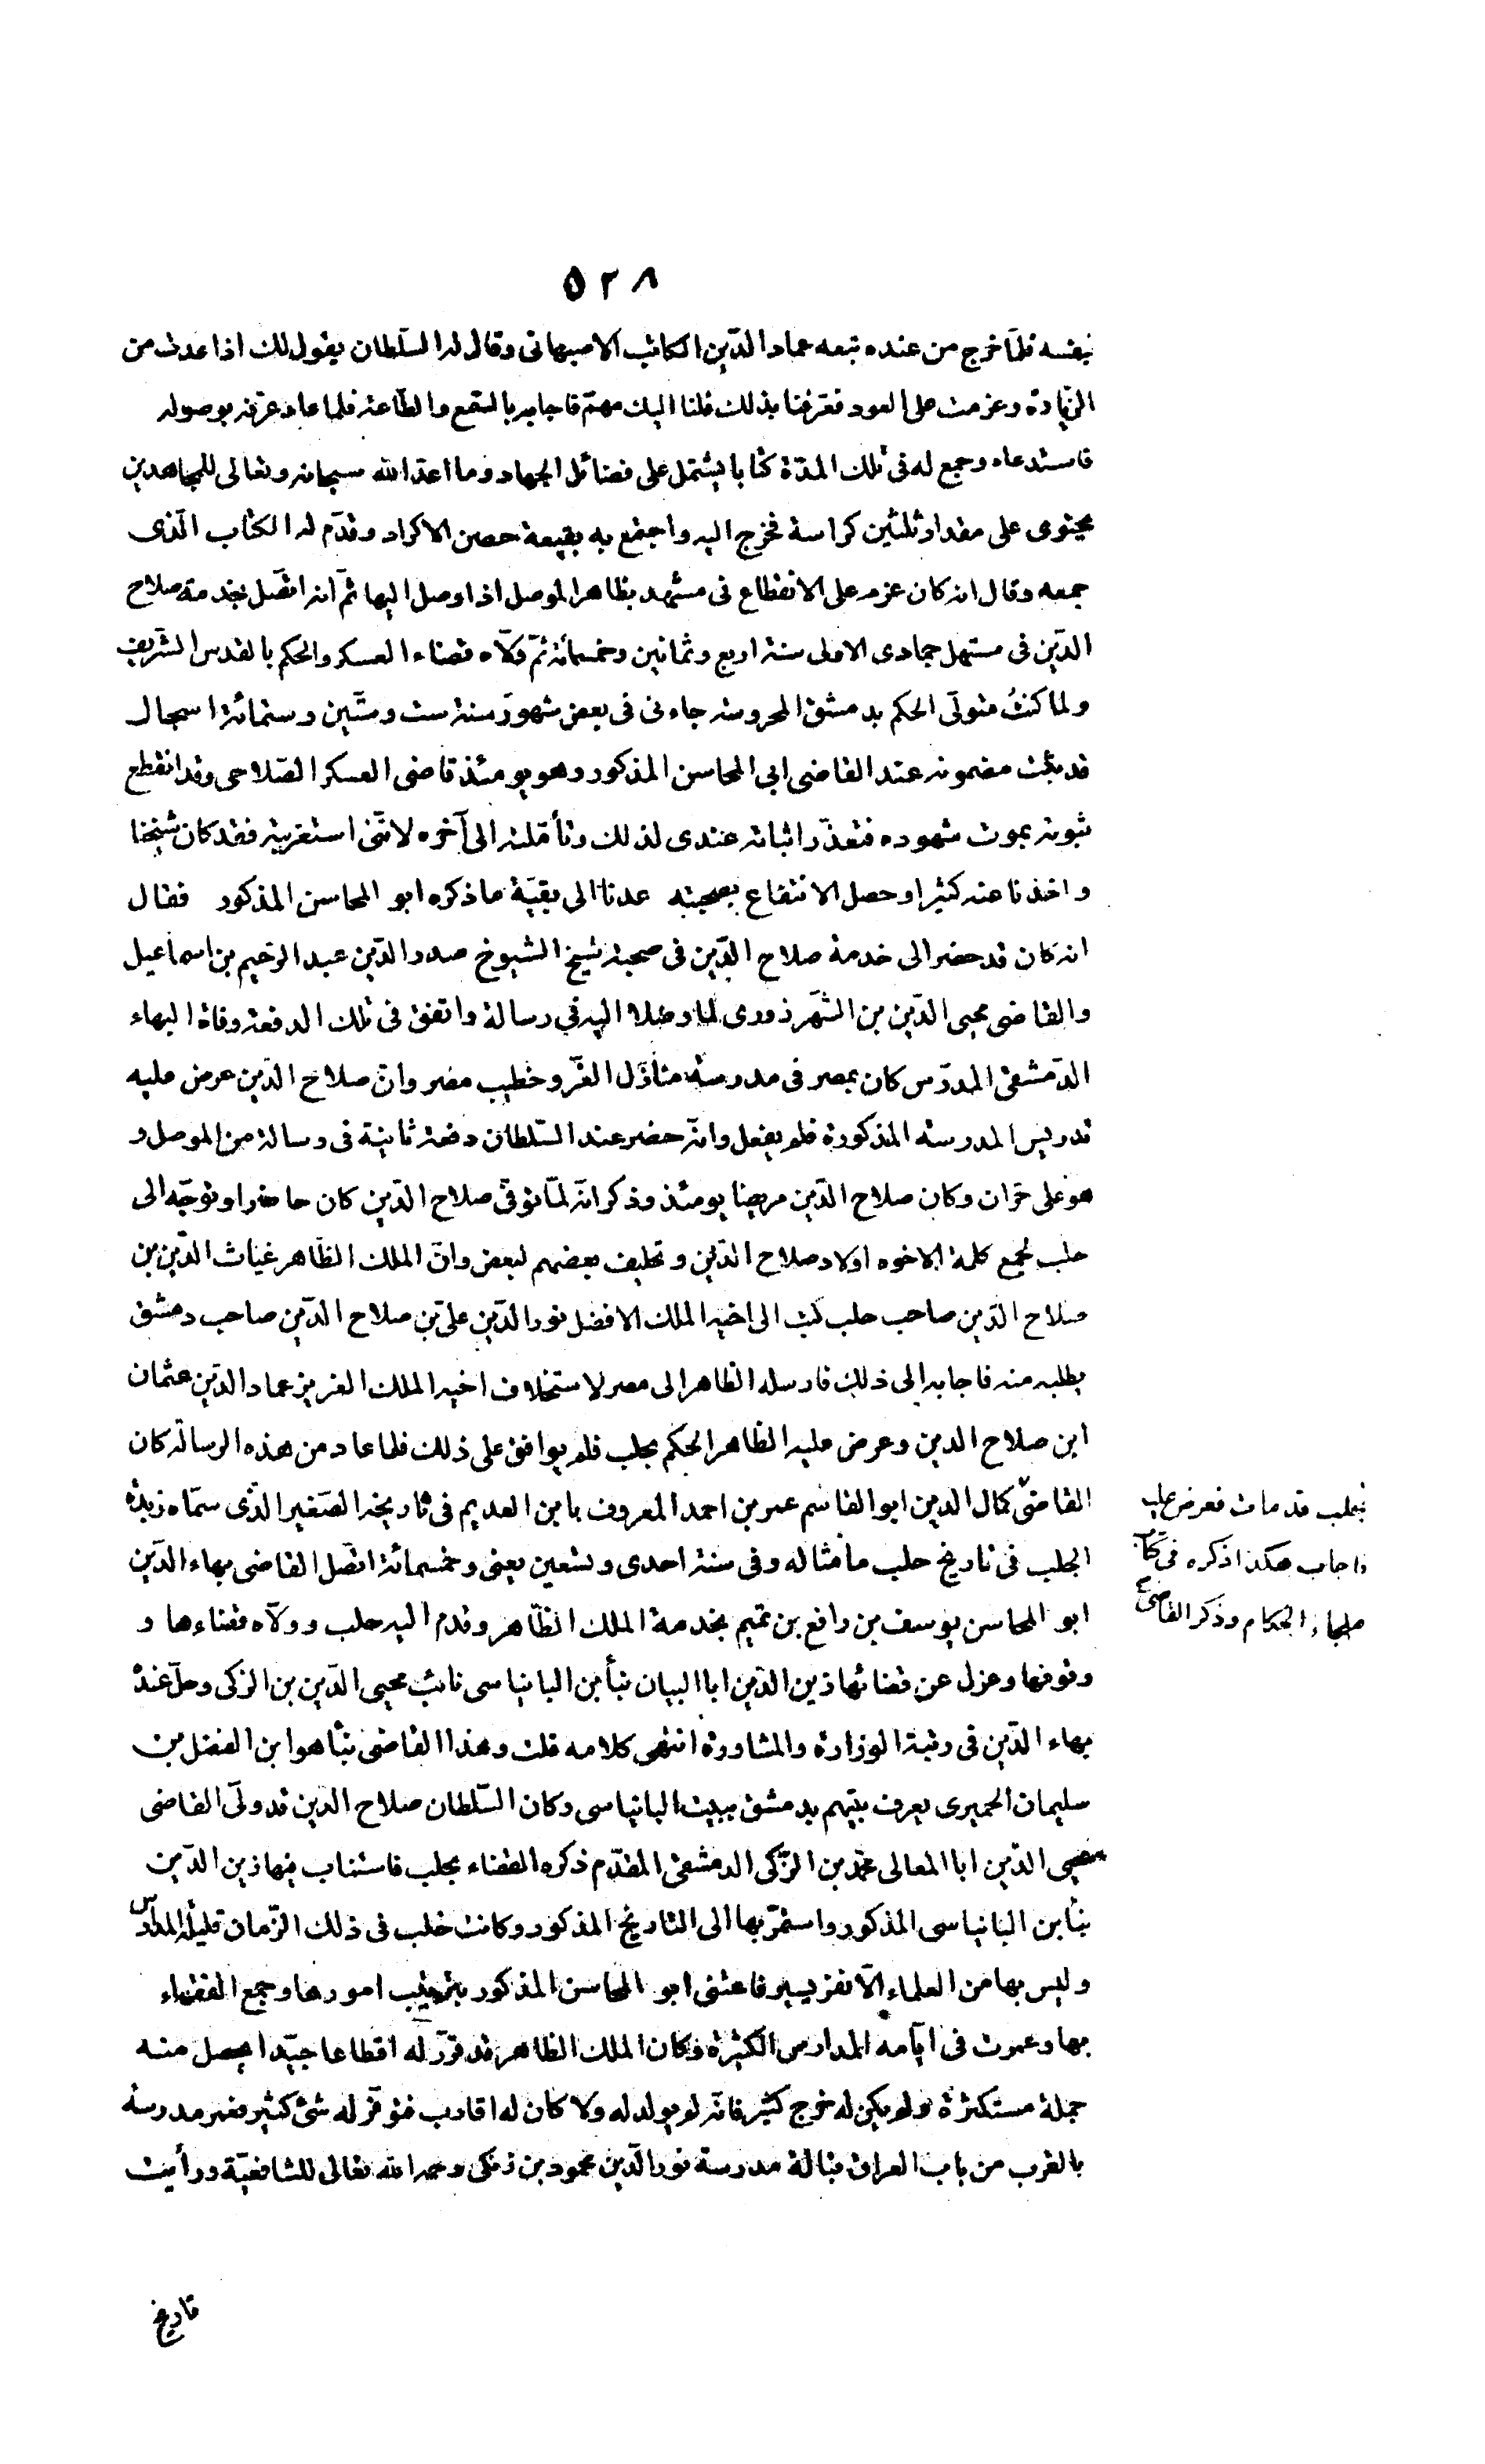 ٥٢٨
بنفسه فلمّا خرج من عنده تبعه عماد الدّين الكاتب الاصبهانى وقال له السّلطان يقول لك اذا عدت من
الزّيارة وعزمت على العود فعرّفنا بذلك فلنا اليك مهمّ فاجابه بالسّمع والطّاعة فلما عاد عرّفه بوصوله
فاستدعاه وجمع له فى تلك المدّة كتابا يشتمل على فضائل الجهاد وما اعدّ الله سبحانه وتعالى للمجاهدين
يحتوى على مقدار ثلثين كراسة فخرج اليه واجتمع به بقيعة حصن الاكراد وقدّم له الكتاب الّذى
جمعه وقال انه كان عزم على الانقطاع فى مشهد بظاهر الموصل اذا وصل اليها ثمّ انه اتّصل بخدمة صلاح
الدّين فى مستهل جمادى الاولى سنة اربع وثمانين وخمسمائة ثمّ ولّاه قضاء العسكر والحكم بالقدس الشّريف
ولما كنتُ متولّى الحكم بدمشق المحروسة جاءنى فى بعض شهور سنة ست وستّين وستمائة اسجال
قد ثبت مضمونه عند القاضى ابى المحاسن المذكور وهو يومئذ قاضى العسكر الصّلاحى وقد انقطع
ثبوته بموت شهوده فتعذّر اثباته عندى لذلك وتأمّلته الى آخره لانّنى استغربته فقد كان شيخنا
واخذنا عنه كثيرا وحصل الانتفاع بصحبته عدنا الى بقيّة ما ذكره ابو المحاسن المذكور فقال
انه كان قد حضر الى خدمة صلاح الدّين فى صحبة شيخ الشيوخ صدر الدّين عبد الرحيم بن اسماعيل
والقاضى محيى الدّين بن الشّهرزورى لما وصلا اليه في رسالة واتفق فى تلك الدفعة وفاة البهاء
الدّمشقىّ المدرّس كان بمصر فى مدرسة منازل العزّ وخطيب مصر وانّ صلاح الدّين عرض عليه
تدريس المدرسة المذكورة فلم يفعل وانّه حضر عند السّلطان دفعة ثانية فى رسالة من الموصل و
هو على حرّان وكان صلاح الدّين مريضا يومئذ وذكر انّه لمّا توفّى صلاح الدّين كان حاضرا وتوجّه الى
حلب لجمع كلمة الاخوه اولاد صلاح الدّين وتحليف بعضهم لبعض وانّ الملك الظّاهر غياث الدّين بن
صلاح الدّين صاحب حلب كتب الى اخيه الملك الافضل نور الدّين علىّ بن صلاح الدّين صاحب دمشق
يطلبه منه فاجابه الى ذلك فارسله الظاهر الى مصر لاستخلاف اخيه الملك العزيز عماد الدّين عثمان
ابن صلاح الدين وعرض عليه الظاهر الحكم بحلب فلم يوافق على ذلك فلما عاد من هذه الرسالة كان
القاضىّ كمال الدين ابو القاسم عمر بن احمد المعروف بابن العديم فى تاريخه الصّغير الّذى سمّاه زبدة
الحلب فى تاريخ حلب ما مثاله وفى سنة احدى وتسعين يعنى وخمسمائة اتّصل القاضى بهاء الدّين
ابو المحاسن يوسف بن رافع بن تميم بخدمة الملك الظّاهر وقدم اليه حلب وولّاه قضاءها و
وقوفها وعزل عن قضائها زين الدّين ابا البيان نبأ بن البانياسى نائب محيى الدّين بن الزكى وحلّ عنده
بهاء الدّين فى رتبة الوزارة والمشاورة انتهى كلامه قلت وهذا القاضى نبأ هو ابن الفضل بن
سليمان الحميرى يعرف بيتهم بدمشق ببيت البانياسى وكان السّلطان صلاح الدين قد ولّى القاضى
محيى الدّين ابا المعالى محمّد بن الزّكى الدمشقىّ المقدّم ذكره القضاء بحلب فاستناب فيها زين الدّين
نبأ بن البانياسى المذكور واستمرّ بها الى التاريخ المذكور وكانت حلب فى ذلك الزّمان قليلة المدارس
وليس بها من العلماء الّا نفر يسير فاعتنى ابو المحاسن المذكور بترتيب امورها وجمع الفقهاء
بها وعمرت فى ايّامه المدارس الكثيرة وكان الملك الظاهر قد قرّر له اقطاعا جيّدا يحصل منه
جملة مستكثرة ولم يكن له خرج كثير فانّه لم يولد له ولا كان له اقارب فتوفّر له شئ كثير فعمر مدرسة
بالقرب من باب العراق قبالة مدرسة نور الدّين محمود بن زنكى رحمه الله تعالى للشافعيّة ورأيت
بحلب قد مات فعرض عليه
فاجاب هكذا ذكره فى كتاب
ملجاء الحكام وذكر القاضى
تاريخ